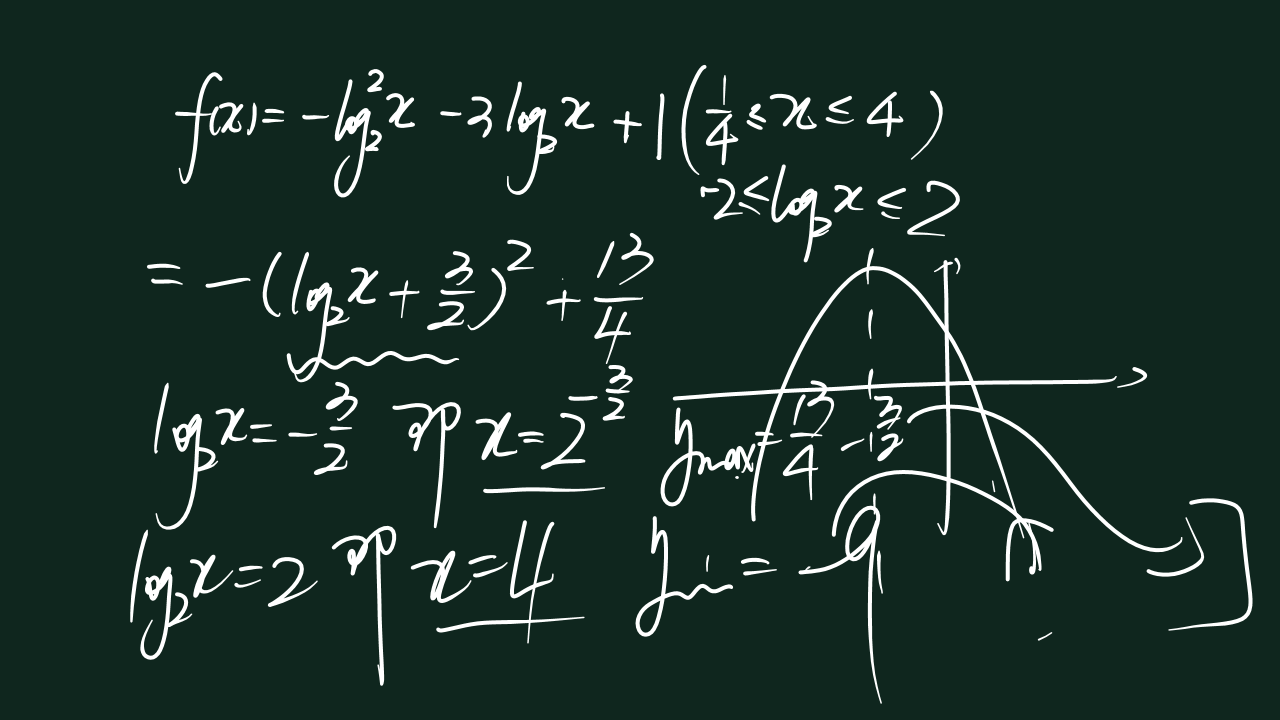 f(x) = -log₂²x - 3log₂x + 1 (1/4 ≤ x ≤ 4)
-2 ≤ log₂x ≤ 2
= -(log₂x + 3/2)² + 13/4
log₂x = -3/2 即 x = 2^(-3/2) ymax = 13/4 -3/2
log₂x = 2 即 x = 4 ymin = -9